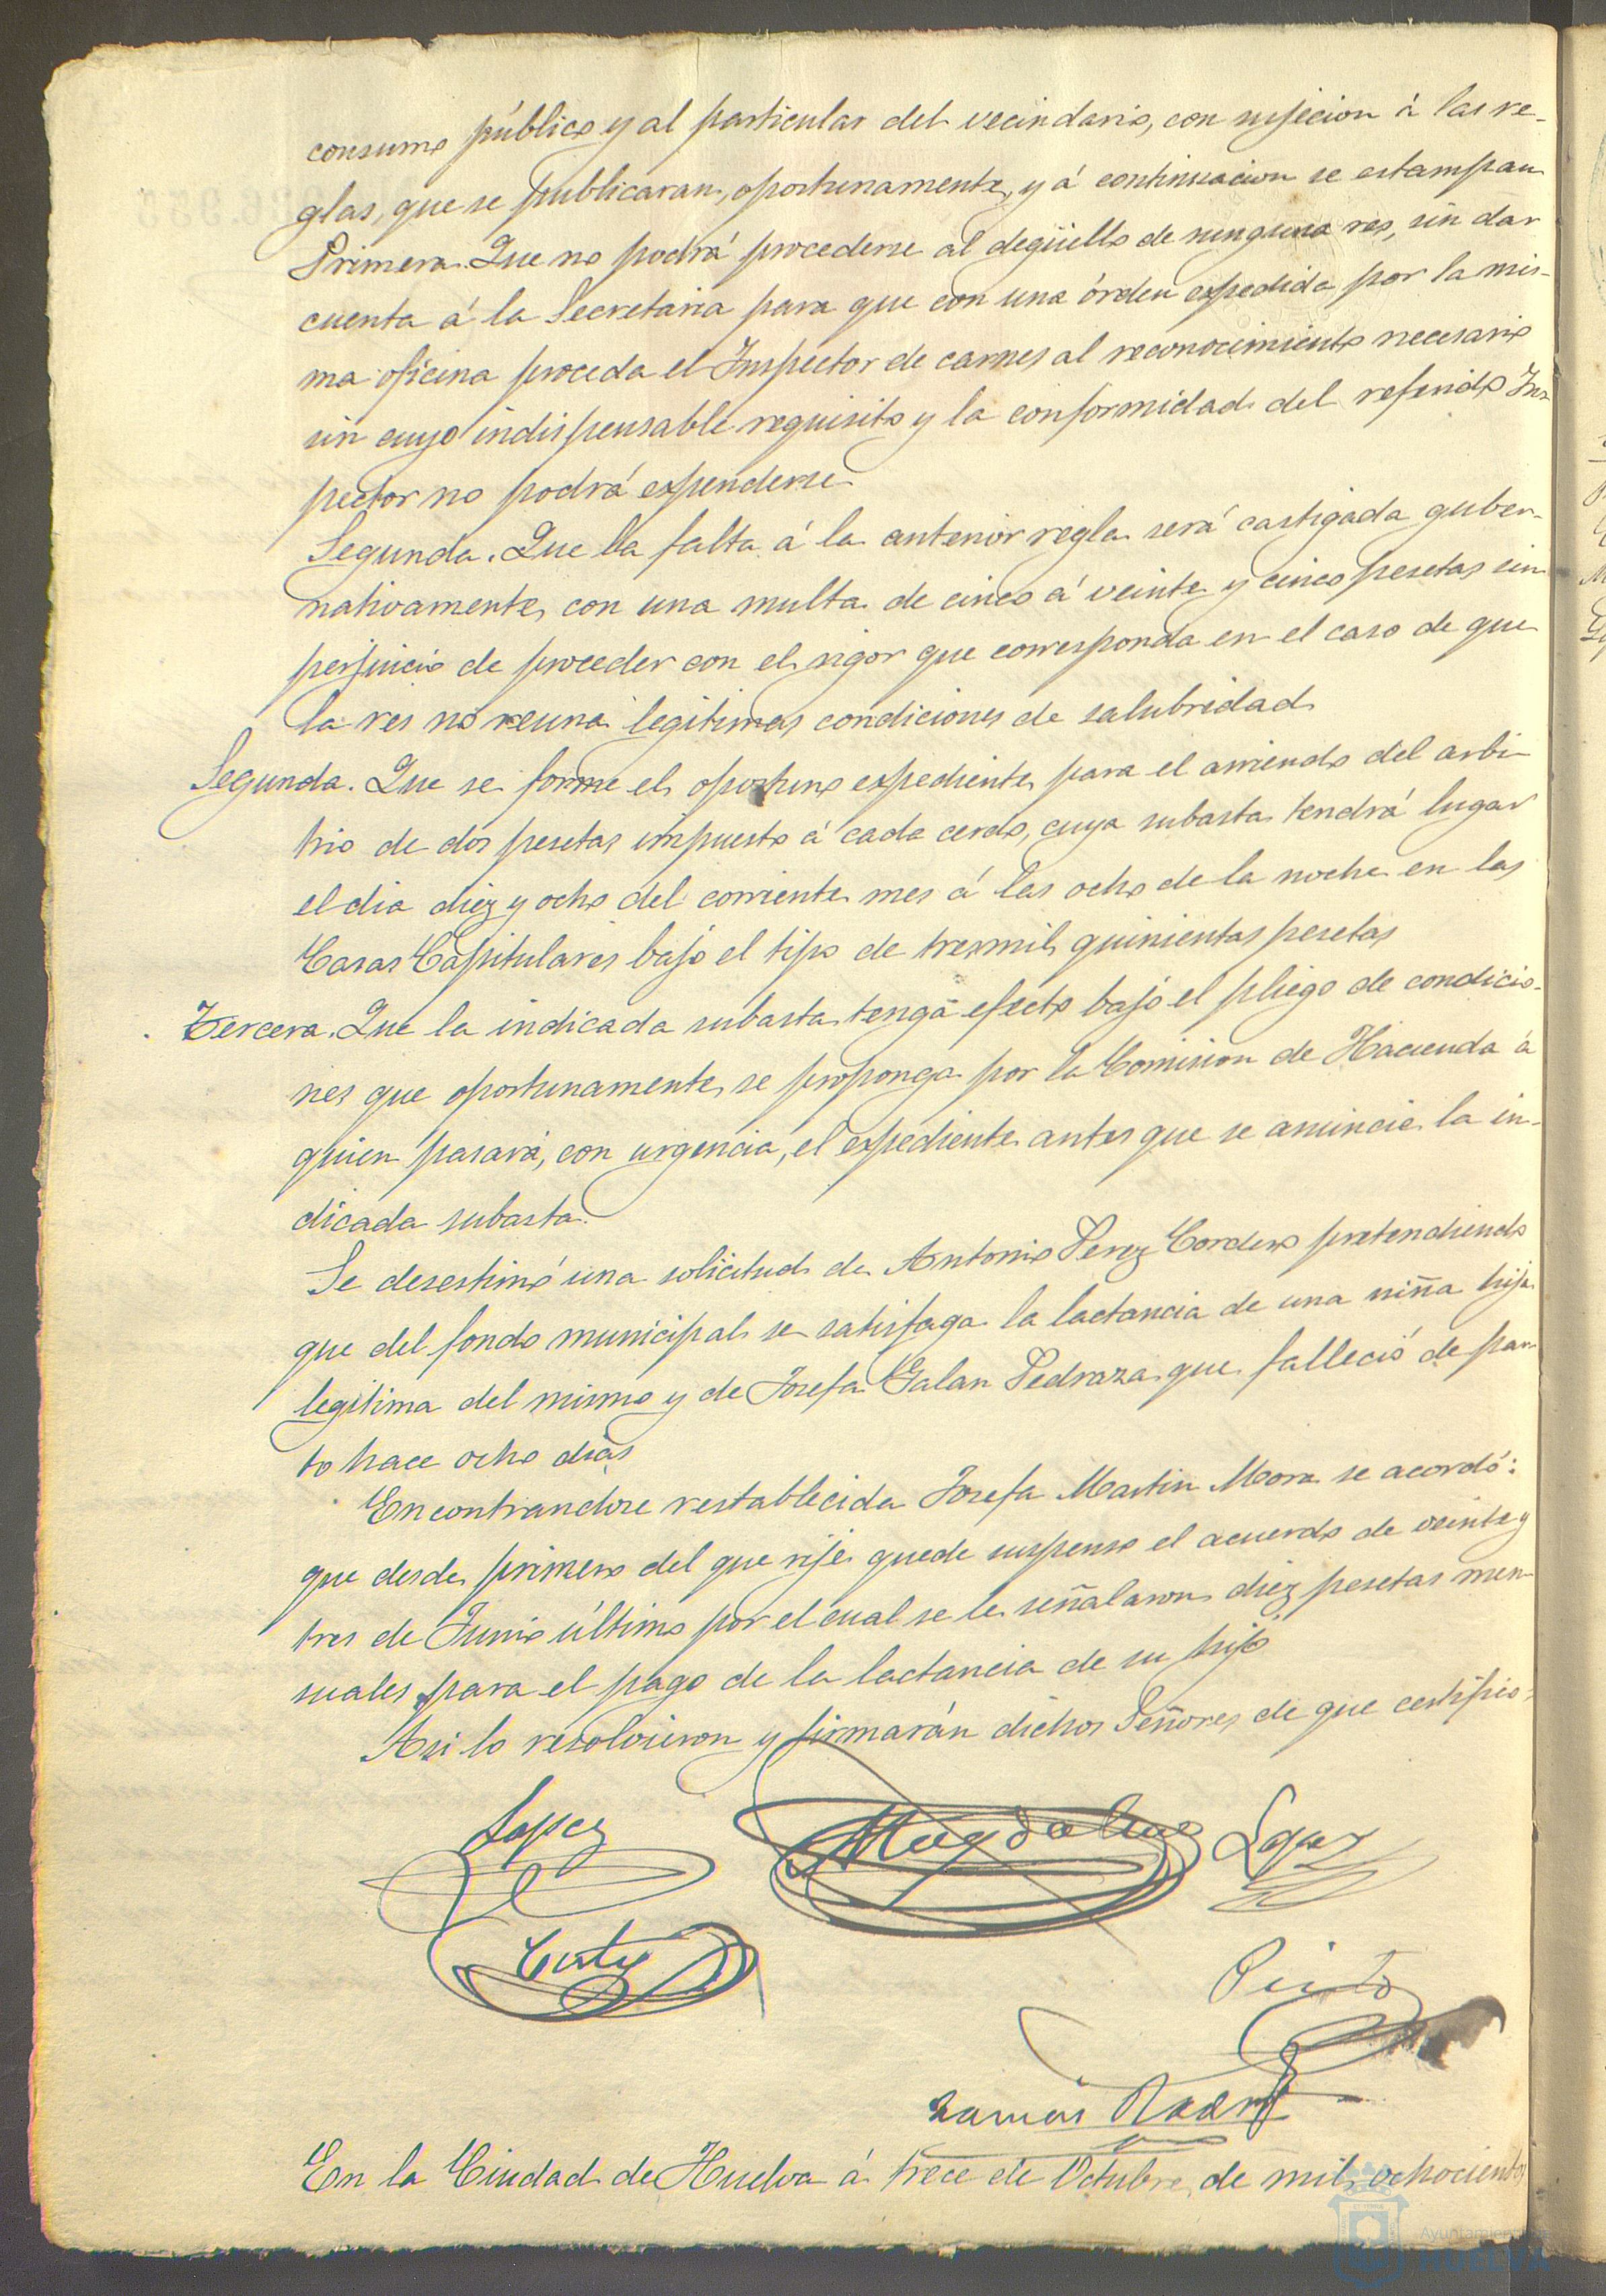 consumo público y al particular del vecindario, con sujecion á las re-
glas, que se publicaran, oportunamente, y á continuacion se estampan
Primera. Que no podrá procederse al degüello de ninguna res, sin dar
cuenta á la Secretaria para que con una órden expedida por la mis-
ma oficina proceda el Inspector de carnes al reconocimiento necesario
sin cuyo indispensable requisito y la conformidad del referido Ins-
pector no podrá expenderse
Segunda. Que la falta á la anterior regla será castigada guber-
nativamente, con una multa de cinco á veinte y cinco pesetas sin
perjuicio de proceder con el rigor que corresponda en el caso de que
la res no reuna legitimas condiciones de salubridad
Segunda. Que se forme el oportuno expediente para el arriendo del arbi-
trio de dos pesetas impuesto á cada cerdo, cuya subasta tendrá lugar
el dia diez y ocho del corriente mes á las ocho de la noche en las
Casas Capitulares bajo el tipo de tres mil quinientas pesetas
Tercera. Que la indicada subasta tenga efecto bajo el pliego de condicio-
nes que oportunamente se proponga por la Comision de Hacienda á
quien pasará, con urgencia, el expediente antes que se anuncie la in-
dicada subasta.
Se desestimó una solicitud de Antonio Perez Cordero pretendiendo
que del fondo municipal se satisfaga la lactancia de una niña hija
legitima del mismo y de Josefa Galan Pedraza que falleció de par-
to hace ocho dias
Encontrandose restablecida Josefa Martin Mora se acordó:
que desde primero del que rije quede suspenso el acuerdo de veinte y
tres de Junio último por el cual se le señalaron diez pesetas men-
suales para el pago de la lactancia de su hijo
Asi lo resolvieron y firmarán dichos Señores de que certifico:
Lopez
Magdalena
Lopez
Pinto
En la Ciudad de Huelva á trece de Octubre de mil ochocientos
Ayuntamiento de
HUELVA